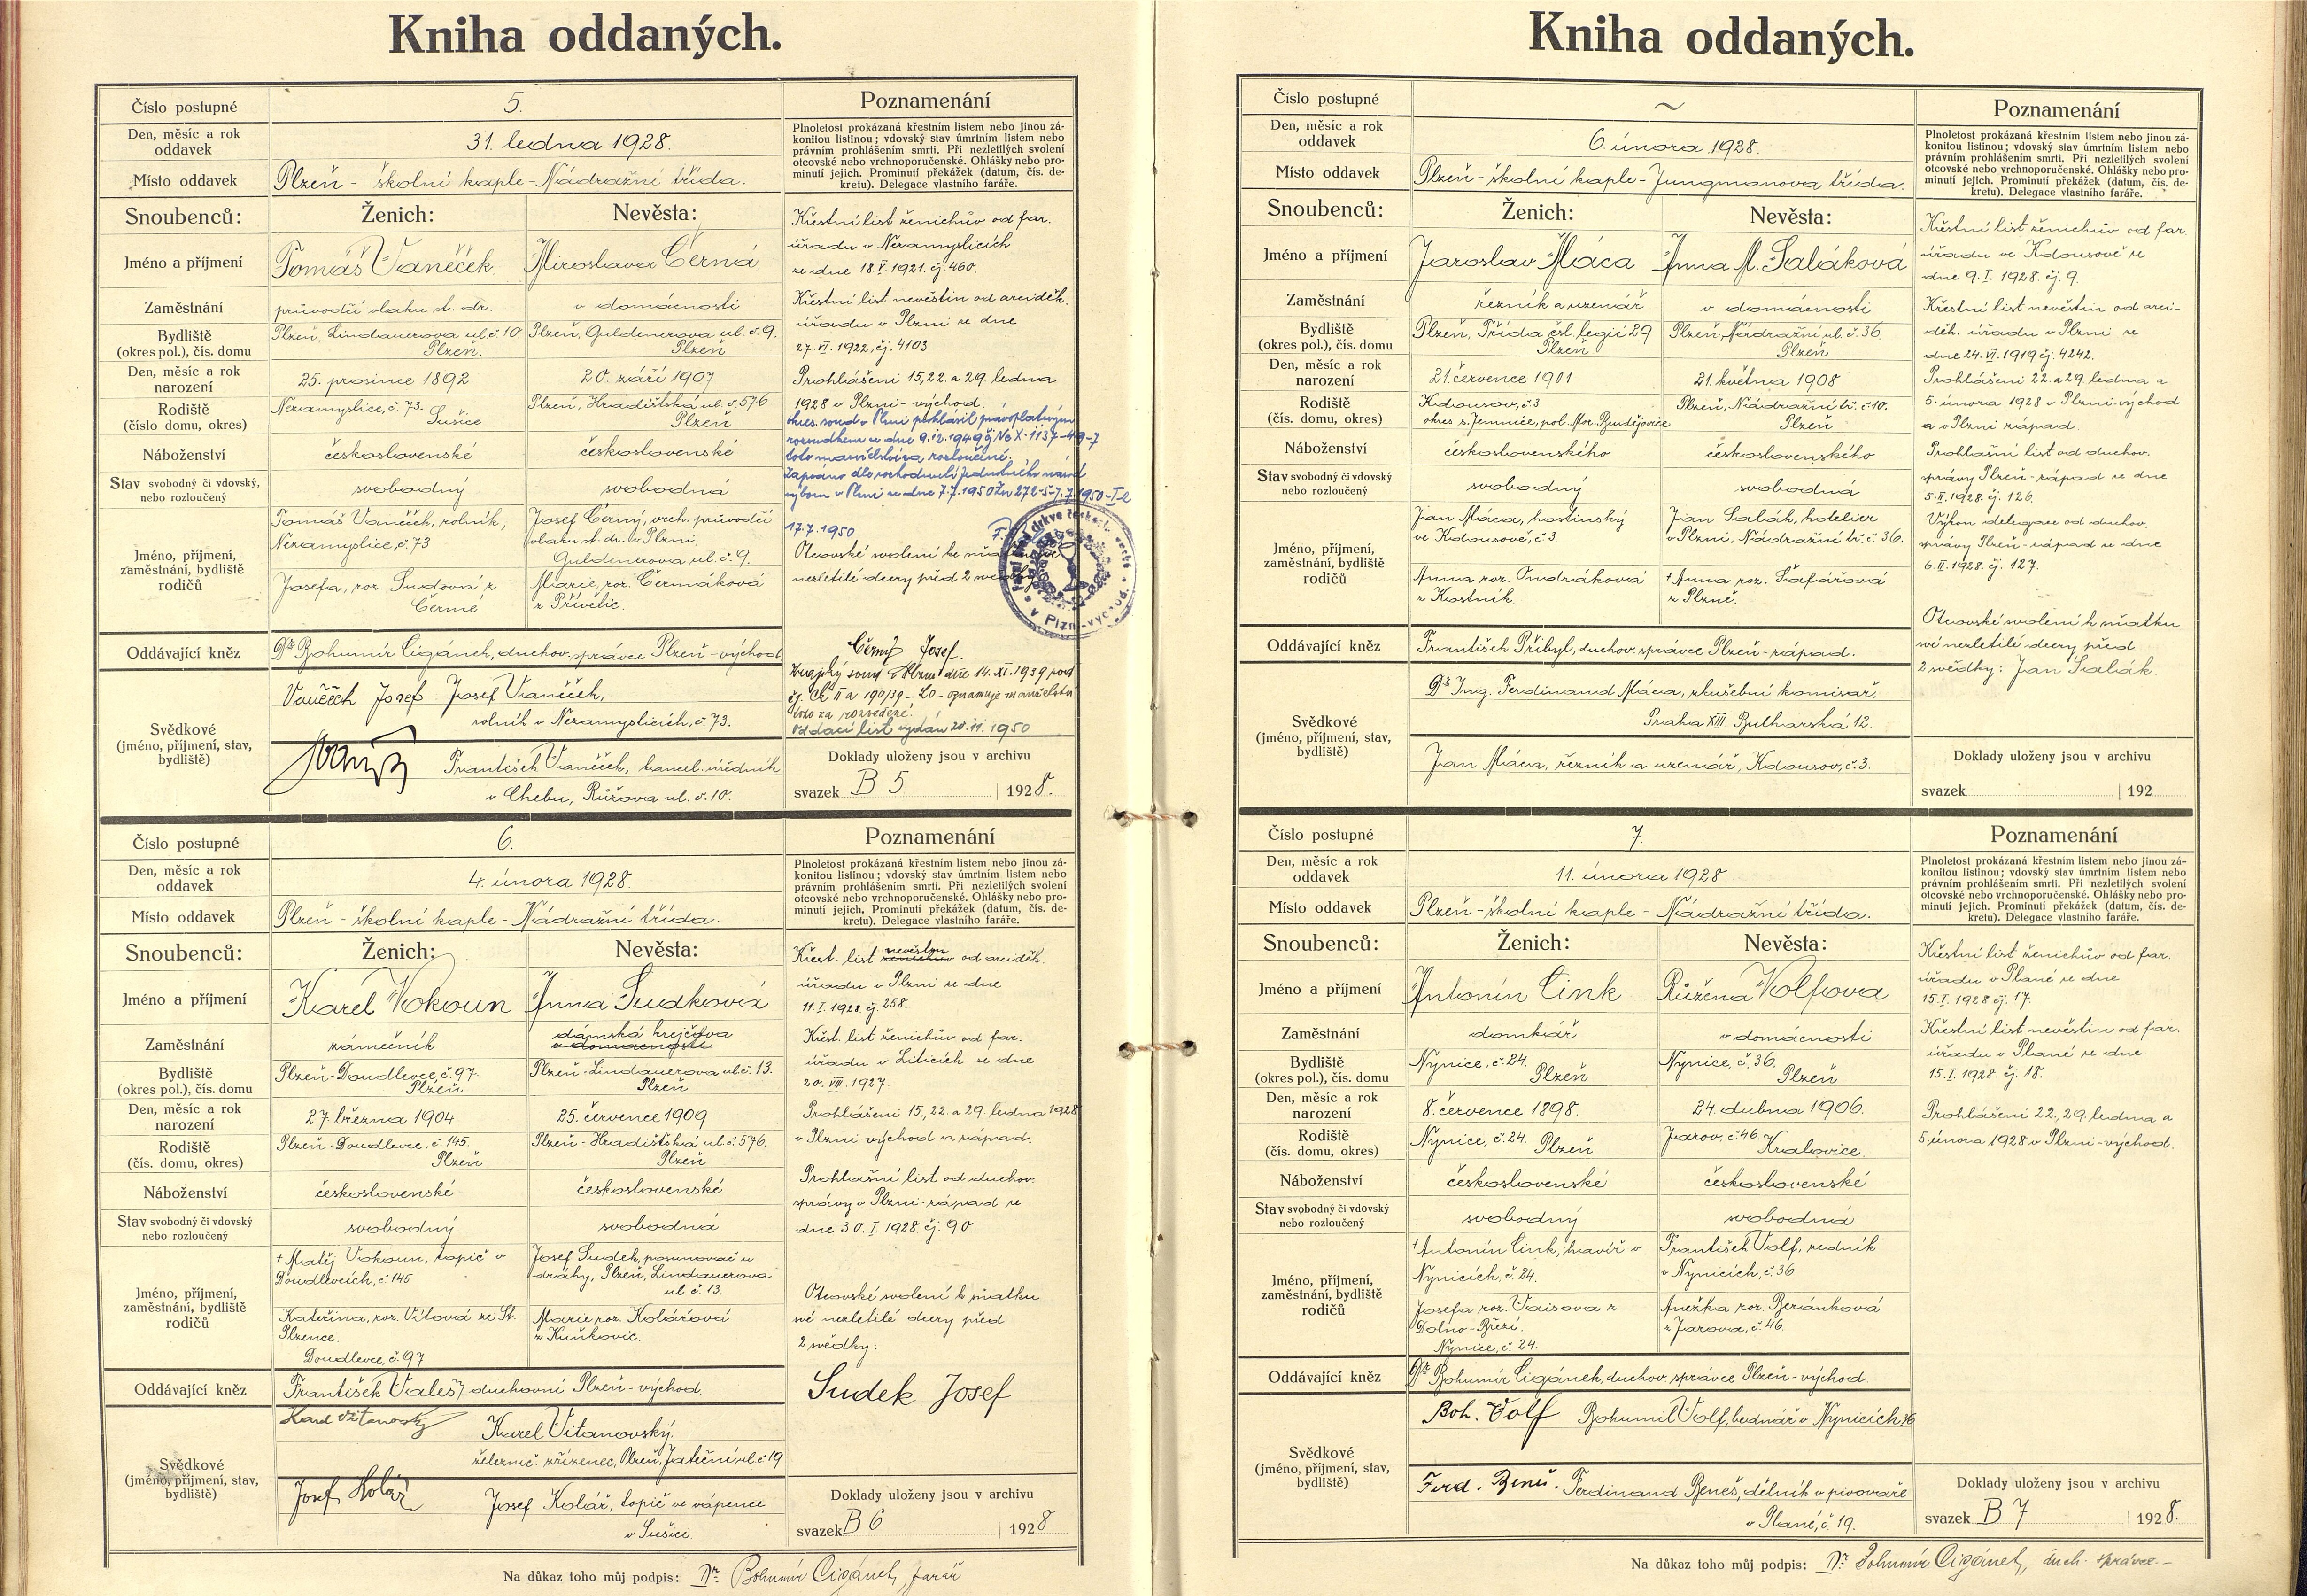 Kniha oddaných.
Číslo postupné
5.
Poznamenání
Den, měsíc a rok
oddavek
31. ledna 1928.
Plnoletost prokázaná křestním listem nebo jinou zá-
konitou listinou; vdovský stav úmrtním listem nebo
právním prohlášením smrti. Při nezletilých svolení
otcovské nebo vrchnoporučenské. Ohlášky nebo pro-
minutí jejich. Prominutí překážek (datum, čís. de-
kretu). Delegace vlastního faráře.
Místo oddavek
Plzeň - školní kaple - Nádražní třída.
Snoubenců:
Ženich:
Nevěsta:
Jméno a příjmení
Tomáš Vaněček
Miroslava Černá.
Zaměstnání
průvodčí vlaku st. dr.
v domácnosti
Bydliště
(okres pol.), čís. domu
Plzeň, Lindauerova ul. č. 10.
Plzeň.
Plzeň, Guldenerova ul. č. 9.
Plzeň
Den, měsíc a rok
narození
25. prosince 1892
20. září 1907
Rodiště
(číslo domu, okres)
Nezamyslice, č. 73.
Sušice
Plzeň, Hradišťská ul. č. 576
Plzeň
Náboženství
československé
československé
Stav svobodný či vdovský,
nebo rozloučený
svobodný
svobodná
Jméno, příjmení,
zaměstnání, bydliště
rodičů
Tomáš Vaněček, rolník,
Nezamyslice, č. 73
Josefa, roz. Sudová z
Černé
Josef Černý, vrch. průvodčí
vlaku st. dr. v Plzni,
Guldenerova ul. č. 9.
Marie, roz. Čermáková
z Přívětic.
Křestní list ženichův od far.
úřadu v Nezamyslicích
ze dne 18. V. 1921. čj. 460.
Křestní list nevěstin od arciděk.
úřadu v Plzni ze dne
27. VI. 1922, čj. 4103
Prohlášeni 15, 22. a 29. ledna
1928 v Plzni - východ.
okres. soud v Plzni prohlásil pravoplatným
rozsudkem ze dne 9. 12. 1949 čj Nc X - 1137 - 49 - 7
toto manželství za rozloučené.
Zapsáno dle rozhodnutí jednotného národ
výboru v Plzni ze dne 7. 7. 1950
17. 7. 1950
Otcovské svolení ke sňatku
nezletilé dcery před 2 svědky
Černý Josef.
Krajský soud v Plzni dne 14. XI. 1939 pod
čj. Ck II a 190/39 - 20 - oznamuje manželství
toto za rozvedené.
Oddací list vydán 20. 11. 1950
Oddávající kněz
Dr. Bohumír Cigánek, duchov. správce Plzeň - východ
Svědkové
(jméno, příjmení, stav,
bydliště)
Vaněček Josef Josef Vaněček,
rolník v Nezamyslicích, č. 73.
František Vaněček, kancel. úředník
v Chebu, Růžova ul. č. 10.
Doklady uloženy jsou v archivu
svazek B 5 1928.
Číslo postupné
6.
Poznamenání
Den, měsíc a rok
oddavek
4. února 1928.
Plnoletost prokázaná křestním listem nebo jinou zá-
konitou listinou; vdovský stav úmrtním listem nebo
právním prohlášením smrti. Při nezletilých svolení
otcovské nebo vrchnoporučenské. Ohlášky nebo pro-
minutí jejich. Prominutí překážek (datum, čís. de-
kretu). Delegace vlastního faráře.
Místo oddavek
Plzeň - školní kaple - Nádražní třída.
Snoubenců:
Ženich:
Nevěsta:
Jméno a příjmení
Karel Vokoun
Anna Sudková
Zaměstnání
zámečník
dámská krejčova
v domácnosti
Bydliště
(okres pol.), čís. domu
Plzeň - Doudlevce, č. 97.
Plzeň
Plzeň - Lindauerova ul. č. 13.
Plzeň
Den, měsíc a rok
narození
27. března 1904
25. července 1909
Rodiště
(čís. domu, okres)
Plzeň - Doudlevce, č. 145.
Plzeň
Plzeň - Hradišťská ul. č. 576.
Plzeň
Náboženství
československé
československé
Stav svobodný či vdovský
nebo rozloučený
svobodný
svobodná
Jméno, příjmení,
zaměstnání, bydliště
rodičů
† Matěj Vokoun, topič v
Doudlevcích, č. 145
Kateřina, roz. Vítová ze St.
Plzence.
Doudlevce, č. 97
Josef Sudek, posunovač u
dráhy, Plzeň, Lindauerova
ul. č. 13.
Marie roz. Kolářová
z Kuňkovic.
Křest. list ženichův nevěstin od arciděk.
úřadu v Plzni ze dne
11. I. 1928. čj. 258.
Křest. list ženichův od far.
úřadu v Liticích ze dne
20. VIII. 1927.
Prohlášeni 15., 22. a 29. ledna 1928
v Plzni východ a západ.
Prohlašní list od duchov.
správy v Plzni - západ ze
dne 30. I. 1928 čj. 90.
Otcovské svolení k sňatku
své nezletilé dcery před
2 svědky:
Sudek Josef
Oddávající kněz
František Valeš, duchovní Plzeň - východ.
Svědkové
(jméno, příjmení, stav,
bydliště)
Karel Vitanovský
Karel Vitanovský.
železnič. zřízenec, Plzeň, Jateční ul. č 19
Josef Kolář
Josef Kolář, topič ve vápence
v Sušici.
Doklady uloženy jsou v archivu
svazek B 6 1928
Na důkaz toho můj podpis: Dr. Bohumír Cigánek, farář
Kniha oddaných.
Číslo postupné
~
Poznamenání
Den, měsíc a rok
oddavek
6. února 1928.
Plnoletost prokázaná křestním listem nebo jinou zá-
konitou listinou; vdovský stav úmrtním listem nebo
právním prohlášením smrti. Při nezletilých svolení
otcovské nebo vrchnoporučenské. Ohlášky nebo pro-
minutí jejich. Prominutí překážek (datum, čís. de-
kretu). Delegace vlastního faráře.
Místo oddavek
Plzeň - školní kaple - Jungmanova třída.
Snoubenců:
Ženich:
Nevěsta:
Jméno a příjmení
Jaroslav Máca
Anna M. Saláková
Zaměstnání
řezník a uzenář
v domácnosti
Bydliště
(okres pol.), čís. domu
Plzeň, Třída čsl. legií 29
Plzeň
Plzeň, Nádražní ul. č. 36.
Plzeň
Den, měsíc a rok
narození
21. července 1901
21. května 1908
Rodiště
(číslo domu, okres)
Kdousov, č. 3
okres s. Jemnice, pol. Mor. Budějovice
Plzeň, Nádražní tř. č. 10.
Plzeň
Náboženství
československého
československého
Stav svobodný či vdovský
nebo rozloučený
svobodný
svobodná
Jméno, příjmení,
zaměstnání, bydliště
rodičů
Jan Máca, hostinský
ve Kdousově, č. 3.
Anna roz. Ondráková
z Kostník.
Jan Salák, hotelier
v Plzni, Nádražní tř. č. 36.
† Anna roz. Šafářová
z Plzně.
Křestní list ženichův od far.
úřadu ve Kdousově ze
dne 9. I. 1928. čj. 9.
Křestní list nevěstin od arci-
děk. úřadu v Plzni ze
dne 24. VI. 1919 čj. 4242.
Prohlášeni 22. a 29. ledna a
5. února 1928 v Plzni - východ
a v Plzni západ.
Prohlašní list od duchov.
správy Plzeň - západ ze dne
5. II. 1928. čj. 126.
Výkon delegace od duchov.
správy Plzeň - západ ze dne
6. II. 1928. čj. 127.
Otcovské svolení k sňatku
své nezletilé dcery před
2 svědky: Jan Salák.
Oddávající kněz
František Přibyl, duchov. správce Plzeň - západ.
Svědkové
(jméno, příjmení, stav,
bydliště)
Dr. Ing. Ferdinand Máca, zkušební komisař,
Praha XIII. Bulharská 12.
Jan Máca, řezník a uzenář, Kdousov, č. 3.
Doklady uloženy jsou v archivu
svazek 192
Číslo postupné
7.
Poznamenání
Den, měsíc a rok
oddavek
11. února 1928
Plnoletost prokázaná křestním listem nebo jinou zá-
konitou listinou; vdovský stav úmrtním listem nebo
právním prohlášením smrti. Při nezletilých svolení
otcovské nebo vrchnoporučenské. Ohlášky nebo pro-
minutí jejich. Prominutí překážek (datum, čís. de-
kretu). Delegace vlastního faráře.
Místo oddavek
Plzeň - školní kaple - Nádražní třída.
Snoubenců:
Ženich:
Nevěsta:
Jméno a příjmení
Antonín Cink
Růžena Volfova
Zaměstnání
domkář
v domácnosti
Bydliště
(okres pol.), čís. domu
Nynice, č. 24.
Plzeň
Nynice, č. 36.
Plzeň
Den, měsíc a rok
narození
8. července 1898.
24. dubna 1906.
Rodiště
(čís. domu, okres)
Nynice, č. 24. Plzeň
Jarov, č. 46.
Kralovice.
Náboženství
československé
československé
Stav svobodný či vdovský
nebo rozloučený
svobodný
svobodná
Jméno, příjmení,
zaměstnání, bydliště
rodičů
† Antonín Cink, havíř v
Nynicích, č. 24.
Josefa roz. Vaisova z
Dolno - Březí.
Nynice, č. 24.
František Volf, zedník
v Nynicích, č. 36
Anežka roz. Beránková
z Jarova, č. 46.
Křestní list ženichův od far.
úřadu v Plané ze dne
15. I. 1928 čj. 17.
Křestní list nevěstin od far.
úřadu v Plané ze dne
15. I. 1928. čj. 18.
Prohlášeni 22., 29. ledna a
5. února 1928 v Plzni - východ.
Oddávající kněz
Dr. Bohumír Cigánek, duchov. správce Plzeň - východ.
Svědkové
(jméno, příjmení, stav,
bydliště)
Boh. Volf Bohumil Volf, bednář v Nynicích 36
Ferd. Beneš. Ferdinand Beneš, dělník v pivovaře
v Plané, č. 19.
Doklady uloženy jsou v archivu
svazek B 7 1928.
Na důkaz toho můj podpis: Dr. Bohumír Cigánek, duch. správce -